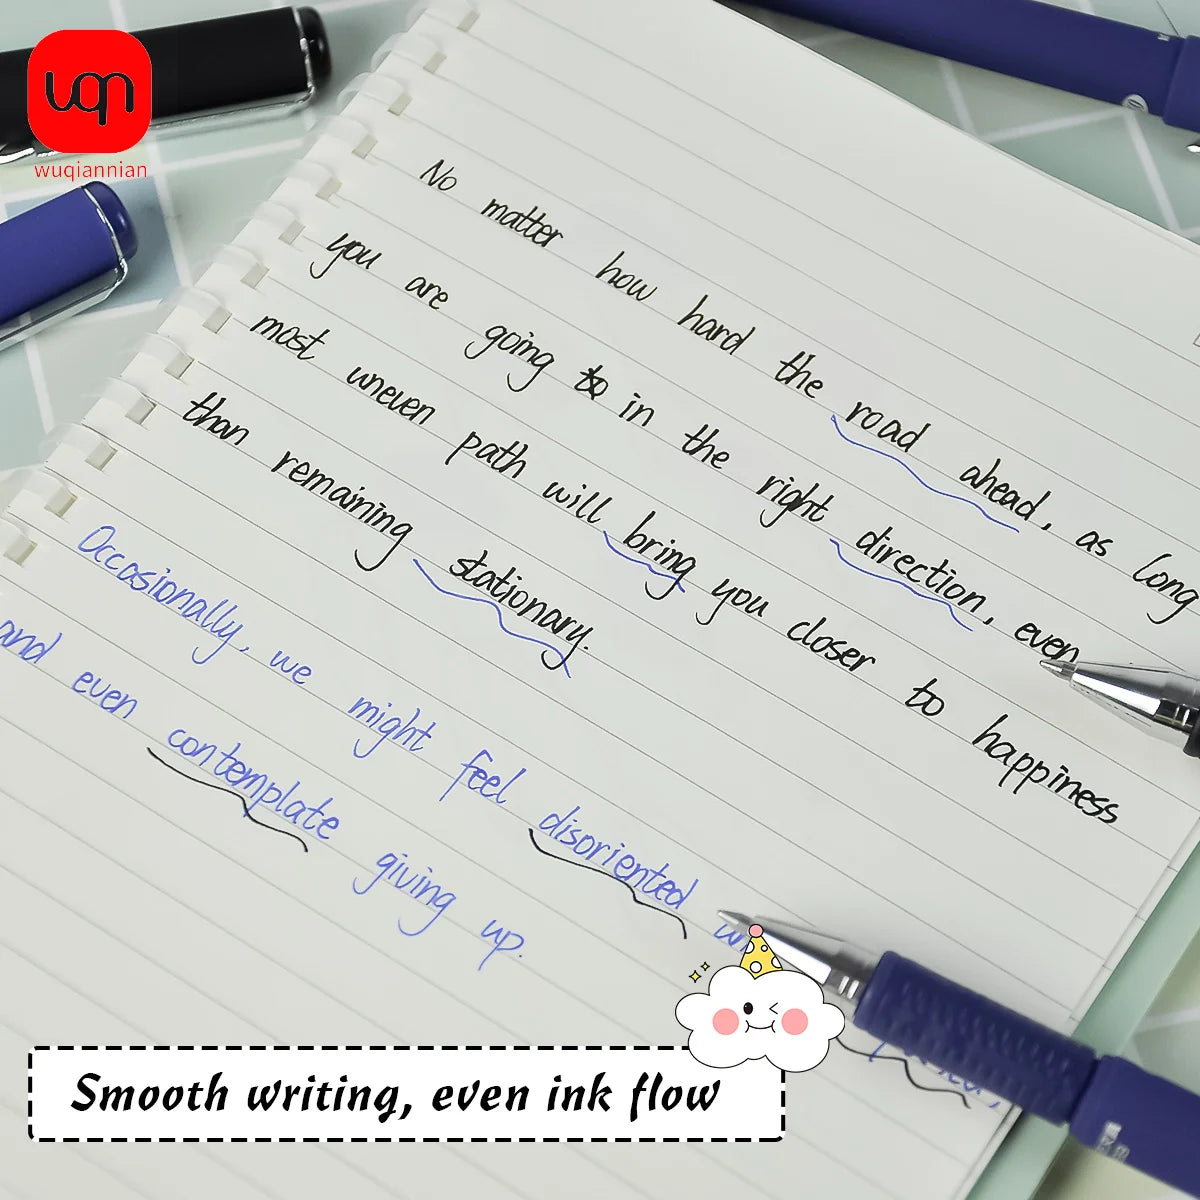 uqn
wuqiannian
No matter how hard the road ahead, as long
you are going to in the right direction, even
most uneven path will bring you closer to happiness
than remaining stationary.
Occasionally, we might feel disoriented
and even contemplate giving up.
Smooth writing, even ink flow